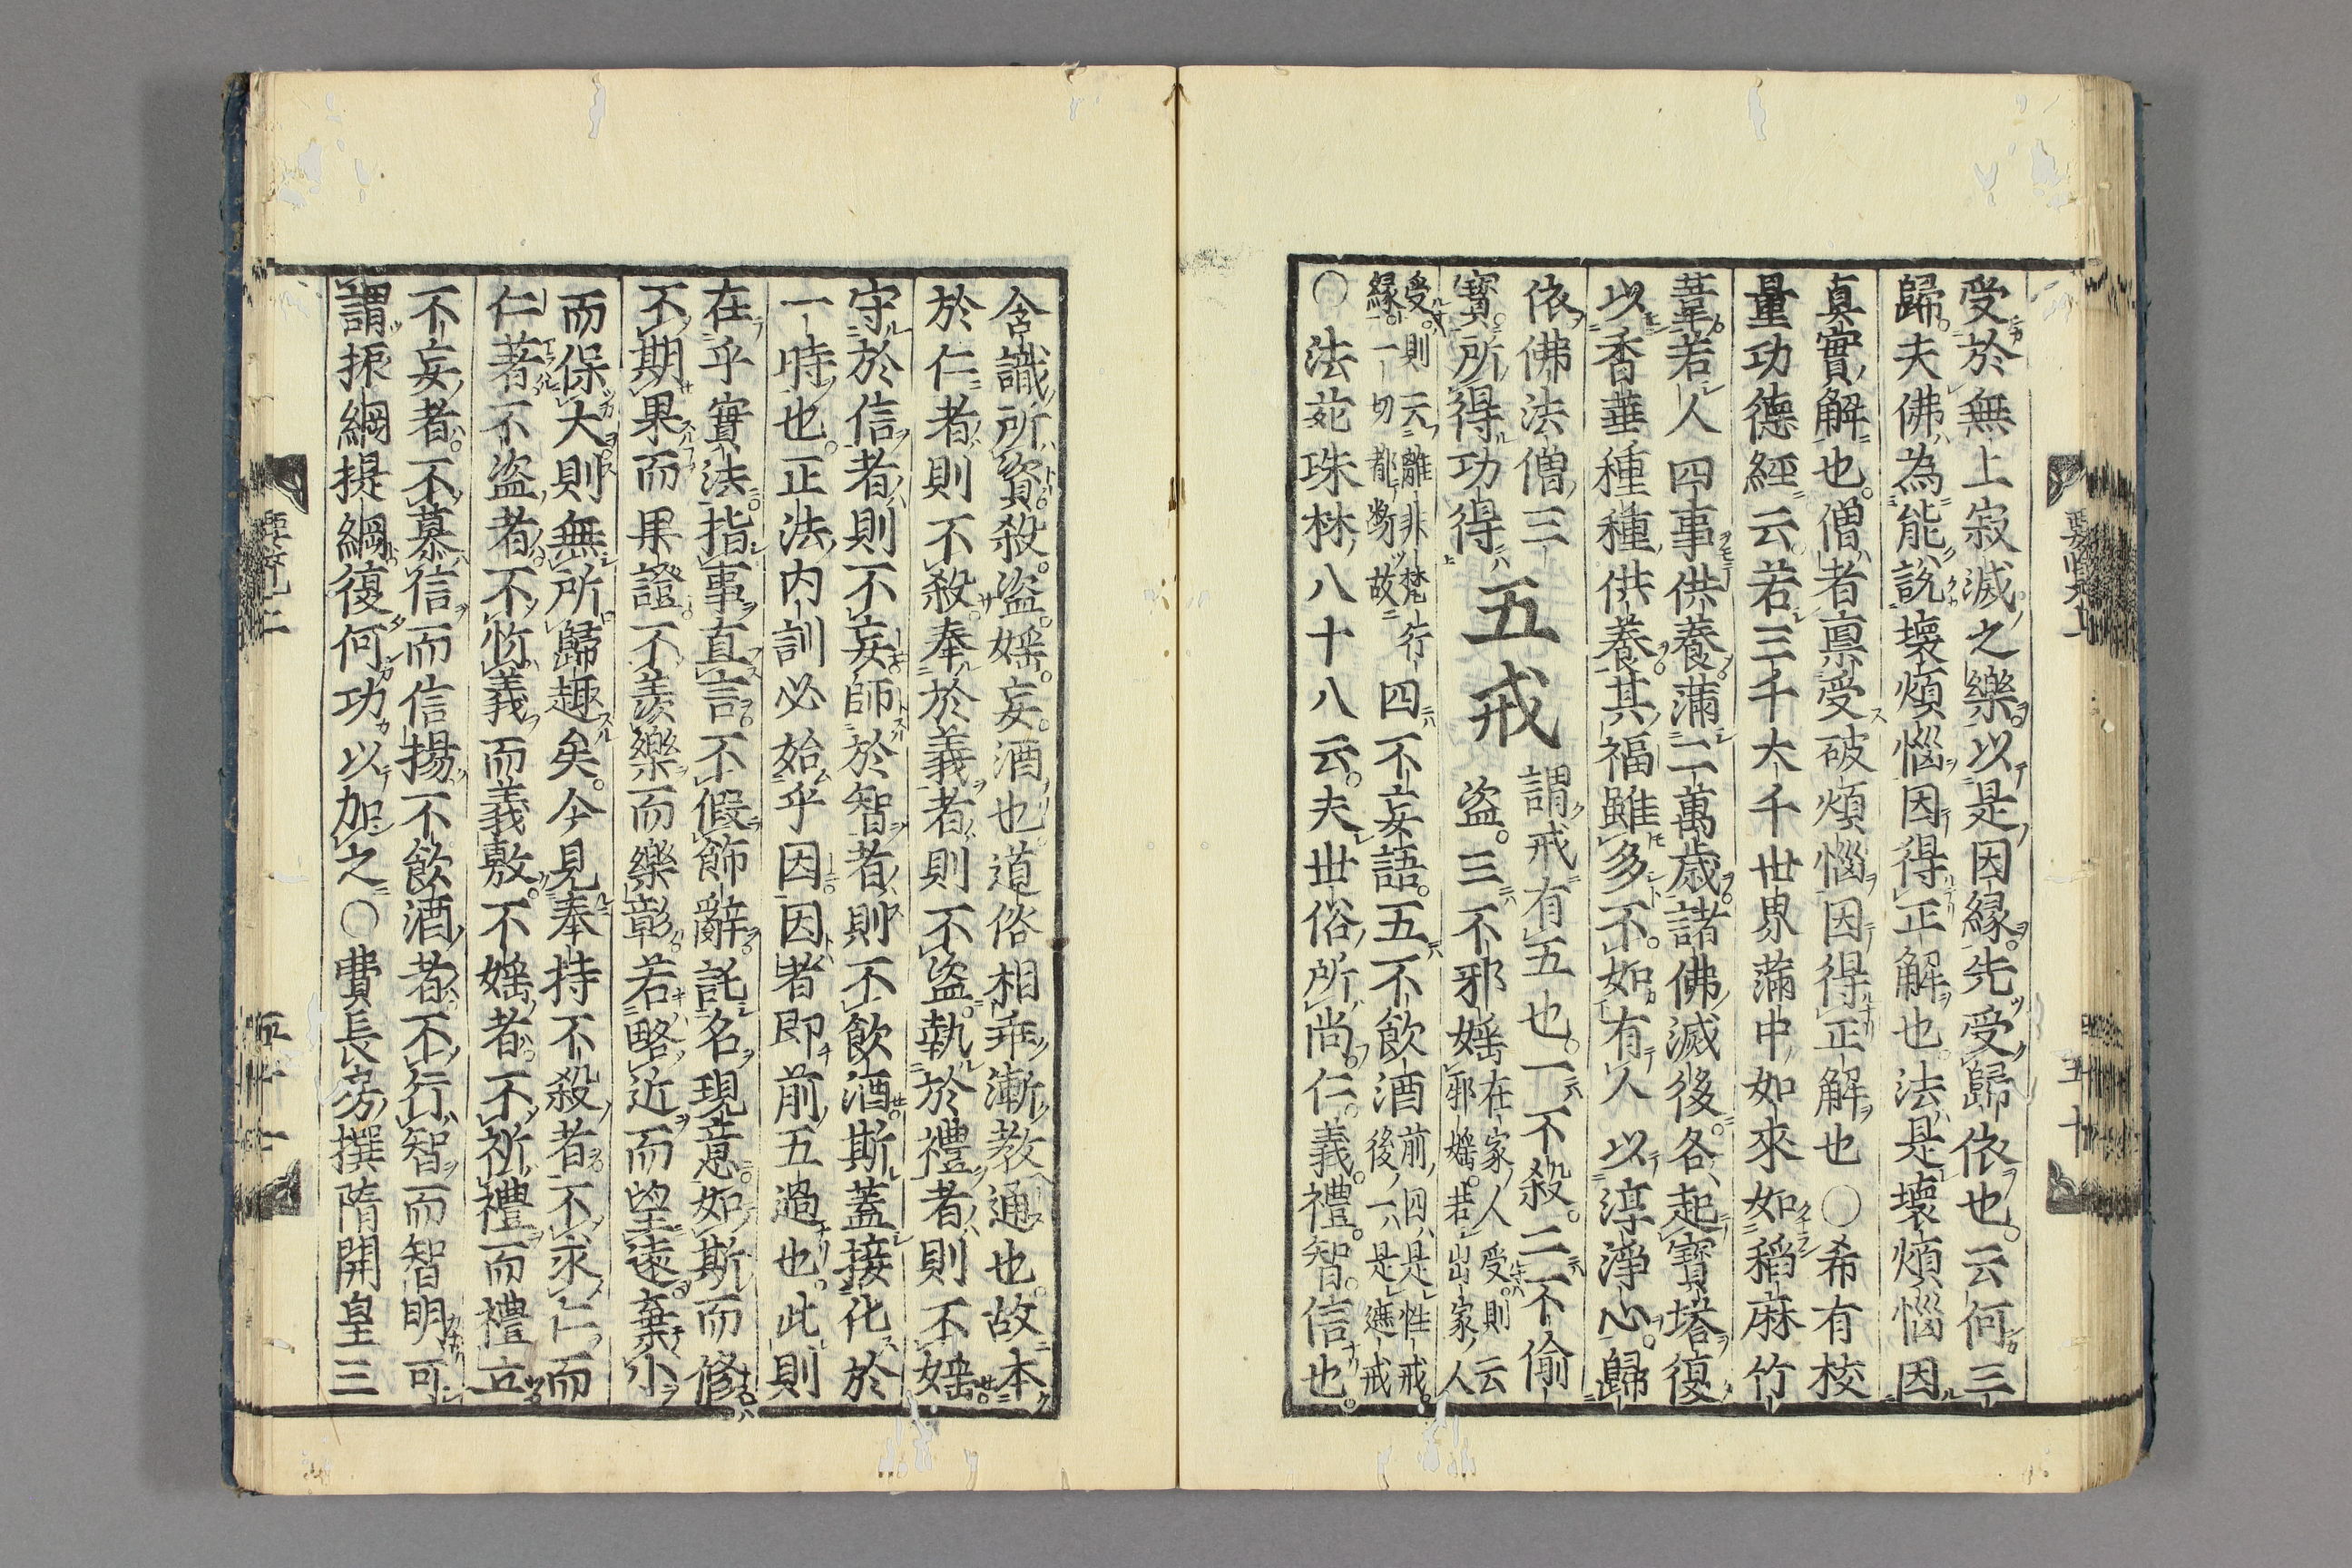 受於無上寂滅之樂以是因緣先受歸依也云何三
歸夫佛為能說壞煩惱因得正解也法是壞煩惱因
真實解也僧者稟受破煩惱因得正解也○希有校
量功德經云若三千大千世界滿中如來如稻麻竹
葦若人四事供養滿二萬歲諸佛滅後各起寶塔復
以香華種種供養其福雖多不如有人以淳淨心歸
依佛法僧三
寶所得功得
五戒
謂戒有五也一不殺二不偷
盜三不邪婬
在家人受則云
邪婬若出家人
受則云離非梵行
緣一切都斷故
四不妄語五不飲酒
前四是性戒
後一是遮戒
○法苑珠林八十八云夫世俗所尚仁義禮智信也
五十
含識所資殺盜婬妄酒也道俗相乖漸教通也故本
於仁者則不殺奉於義者則不盜執於禮者則不婬
守於信者則不妄師於智者則不飲酒斯蓋接化於
一時也正法内訓必始乎因因者即前五過也此則
在乎實法指事直言不假飾辭託名現意如斯而修
不期果而果證不羨樂而樂彰若略近而望遠棄小
而保大則無所歸趣矣今見奉持不殺者不求仁而
仁著不盜者不忻義而義敷不婬者不祈禮而禮立
不妄者不慕信而信揚不飲酒者不行智而智明可
謂振綱提綱復何功以加之○費長房撰隋開皇三